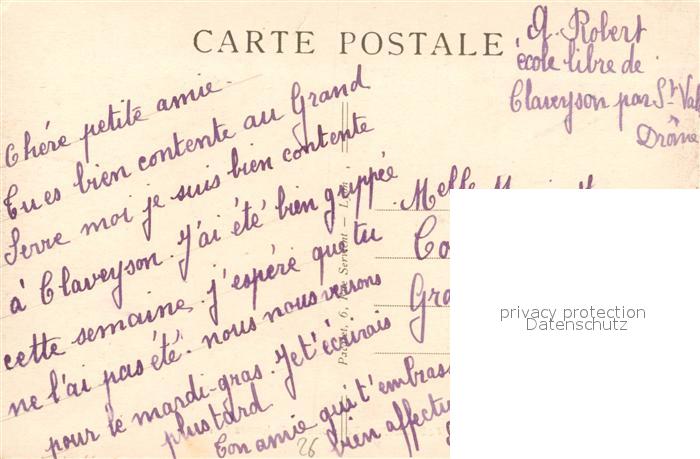 CARTE POSTALE
G. Robert
école libre de
Claveyson par St Val
Drôme
Chére petite amie.
Tu es bien contente au Grand
Serre moi je suis bien contente
à Claveyson. J'ai été bien grippée
cette semaine. j'espére que tu
ne l'ai pas été. nous nous verrons
pour le mardi-gras. Je t'écrirais
plus tard
Ton amie qui t'embrass
bien affectu
26
Melle
Co
Gra
6, Rue Servient — Lyon
privacy protection
Datenschutz